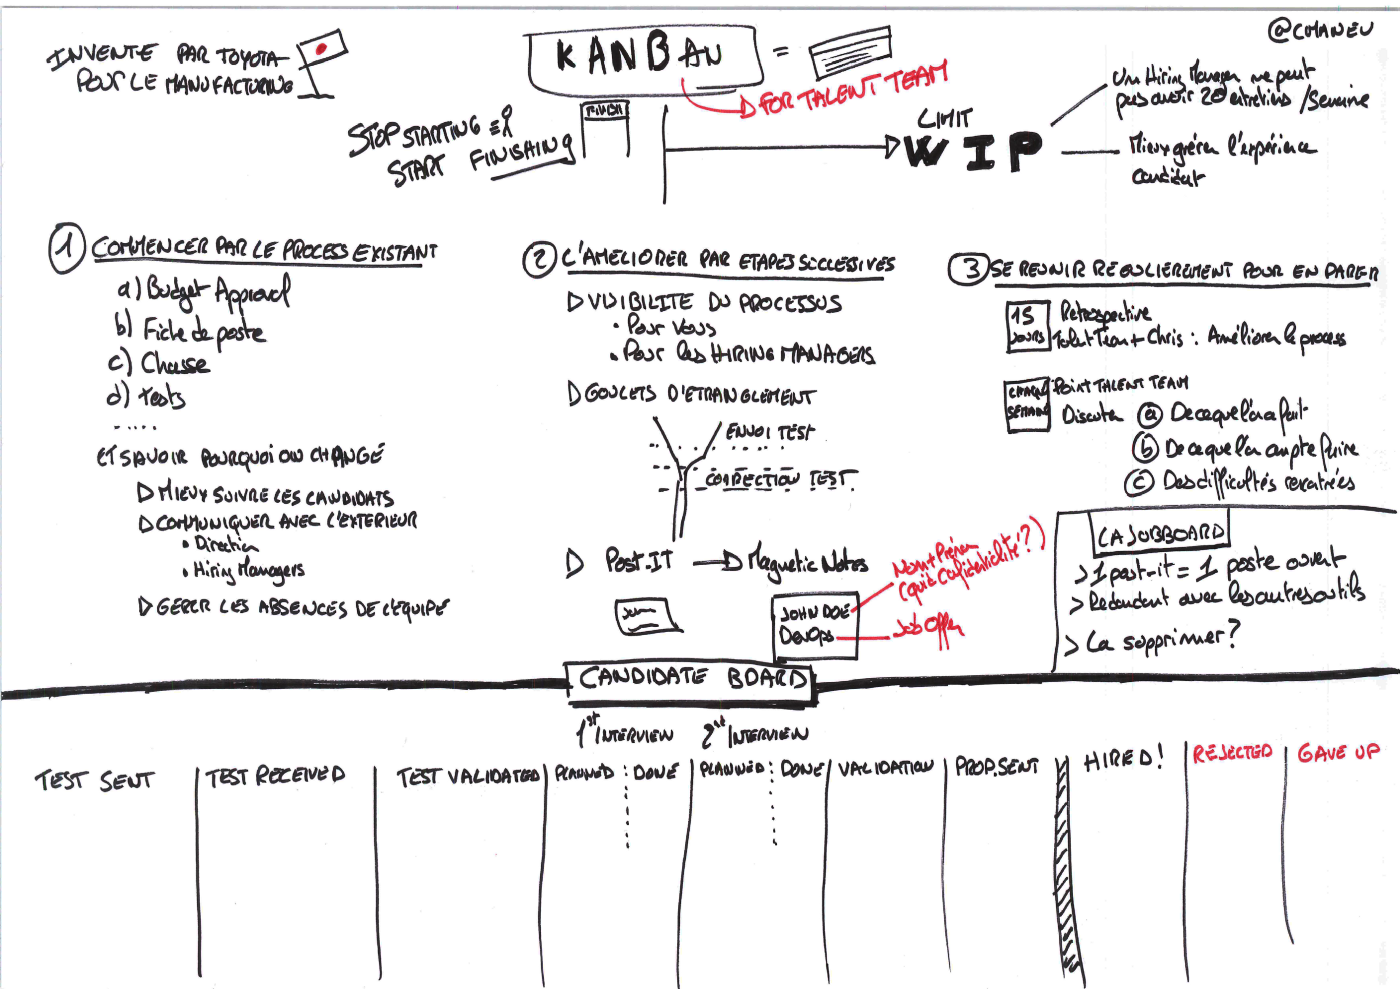 @CMANEU
INVENTE PAR TOYOTA
POUR LE MANUFACTURING
KANBAN =
FOR TALENT TEAM
STOP STARTING ET
START FINISHING
FINISH
LIMIT
WIP
Un Hiring Manager ne peut
pas avoir 20 entretiens / Semaine
Mieux gérer l'expérience
candidat
1 COMMENCER PAR LE PROCESS EXISTANT
a) Budget Approval
b) Fiche de poste
c) Chasse
d) Tests
.....
ET SAVOIR POURQUOI ON CHANGE
MIEUX SUIVRE LES CANDIDATS
COMMUNIQUER AVEC L'EXTERIEUR
• Direction
• Hiring Managers
GERER LES ABSENCES DE L'EQUIPE
2 L'AMELIORER PAR ETAPES SUCCESSIVES
VISIBILITE DU PROCESSUS
• Pour Vous
• Pour les HIRING MANAGERS
GOULETS D'ETRANGLEMENT
ENVOI TEST
CORRECTION TEST
POST-IT Magnetic Notes
JOHN DOE
DevOps
Nom + Prénom
(quid confidentialité ?)
Job Offer
3 SE REUNIR REGULIEREMENT POUR EN PARLER
15
JOURS
Rétrospective
Talent Team + Chris : Améliorer le process
CHAQUE
SEMAINE
POINT TALENT TEAM
Discuter a De ce que l'on a fait
b De ce que l'on compte faire
c Des difficultés rencontrées
LA JOBBOARD
> 1 post-it = 1 poste ouvert
> Redondant avec les autres outils
> La supprimer ?
CANDIDATE BOARD
1st INTERVIEW 2nd INTERVIEW
TEST SENT TEST RECEIVED TEST VALIDATED PLANNED DONE PLANNED DONE VALIDATION PROP. SENT HIRED! REJECTED GAVE UP